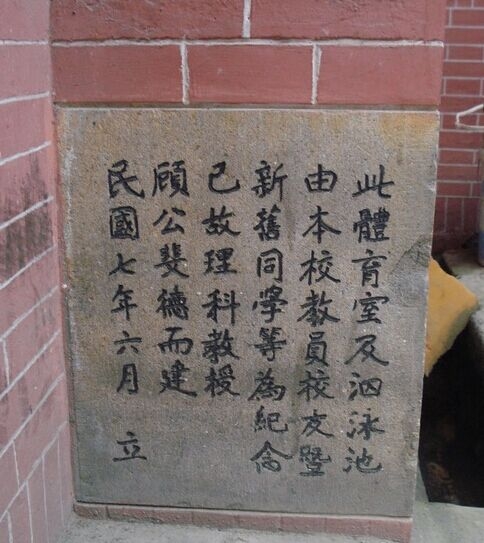 此體育室及泅泳池
由本校教員校友暨
新舊同學等為紀念
已故理科教授
顧公斐德而建
民國七年六月 立